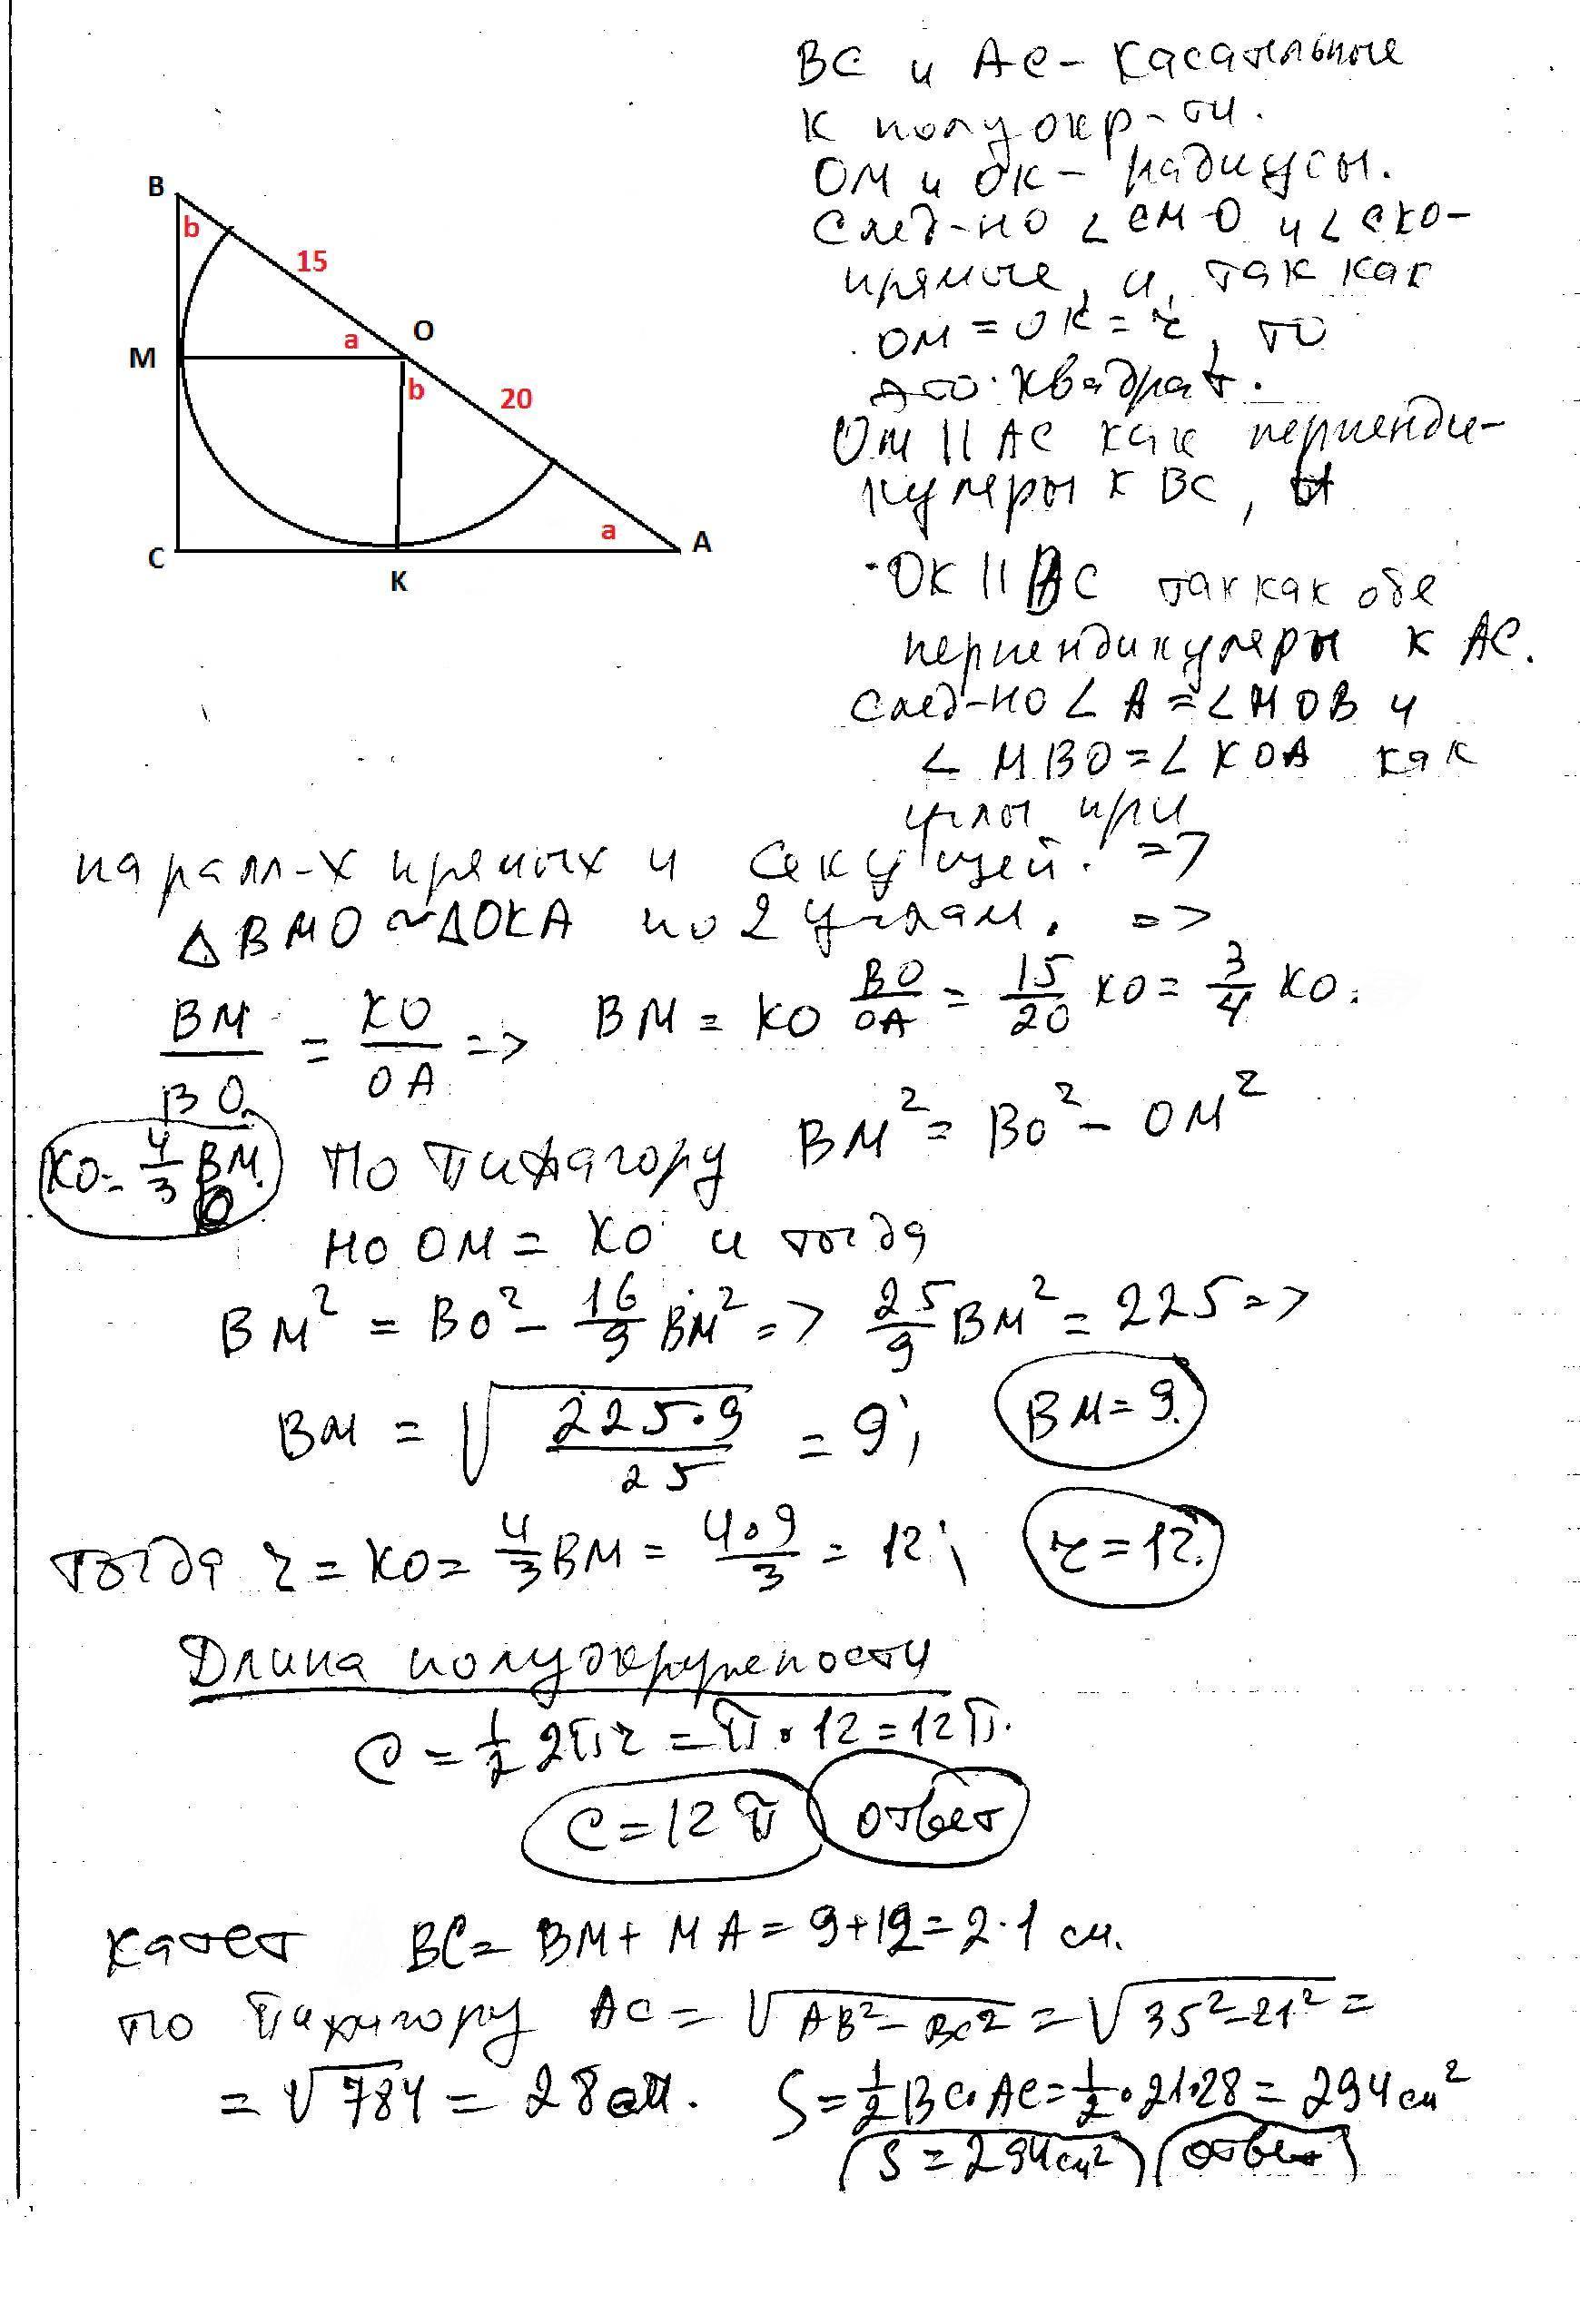 B
b
15
M
a
O
b
20
a
C
K
A
BC и AC - касательные
к полуокр-ти.
OM и OK - радиусы.
След-но ∠CMO и ∠CKO-
прямые, и, так как
OM = OK = r, то
это квадрат.
OM || AC как перпенди-
куляры к BC, и
OK || BC так как обе
перпендикуляры к AC.
След-но ∠A = ∠MOB и
∠MBO = ∠KOA как
углы при
паралл-х прямых и секущей. =>
△BMO ~ △OKA по 2 углам. =>
BM/BO = KO/OA => BM = KO BO/OA = 15/20 KO = 3/4 KO.
KO = 4/3 BM. По Пифагору BM² = BO² - OM²
но OM = KO и тогда
BM² = BO² - 16/9 BM² => 25/9 BM² = 225 =>
BM = √(225·9/25) = 9; BM = 9.
тогда r = KO = 4/3 BM = 4·9/3 = 12; r = 12.
Длина полуокружности
C = 1/2 2πr = π·12 = 12π.
C = 12π ответ
Катет BC = BM + MA = 9+12 = 21 см.
по Пифагору AC = √(AB² - BC²) = √(35² - 21²) =
= √784 = 28 см. S = 1/2 BC·AC = 1/2·21·28 = 294 см²
S = 294 см² ответ